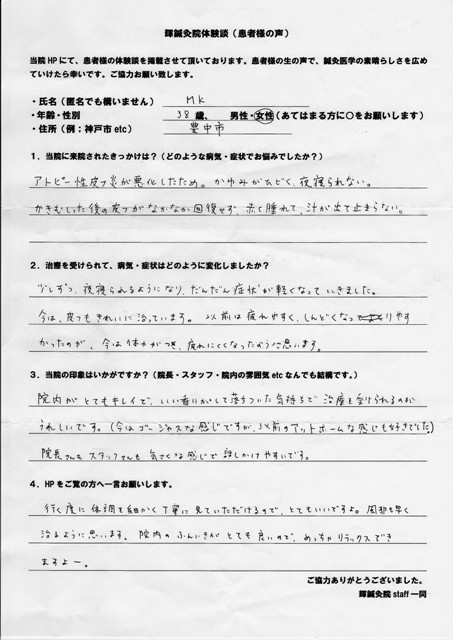 輝鍼灸院体験談（患者様の声）
当院HPにて、患者様の体験談を掲載させて頂いております。患者様の生の声で、鍼灸医学の素晴らしさを広め
ていけたら幸いです。ご協力お願い致します。
・氏名（匿名でも構いません） MK
・年齢・性別 38歳、 男性・女性（あてはまる方に○をお願いします）
・住所（例：神戸市etc） 豊中市
1．当院に来院されたきっかけは？（どのような病気・症状でお悩みでしたか？）
アトピー性皮フ炎が悪化したため。かゆみがひどく、夜寝られない。
かきむしった後の皮フがなかなか回復せず、赤く腫れて、汁が出て止まらない。
2．治療を受けられて、病気・症状はどのように変化しましたか？
少しずつ、夜寝られるようになり、だんだん症状が軽くなっていきました。
今は、皮フもきれいに治っています。以前は疲れやすく、しんどくなりやす
かったのが、今は体力がつき、疲れにくくなったように思います。
3．当院の印象はいかがですか？（院長・スタッフ・院内の雰囲気etcなんでも結構です。）
院内がとてもキレイで、いい香りがして落ちついた気持ちで治療を受けられるのが
うれしいです。（今はゴージャスな感じですが、以前のアットホームな感じも好きでした）
院長さんもスタッフさんも気さくな感じで話しかけやすいです。
4．HPをご覧の方へ一言お願いします。
行く度に体調を細かく丁寧に見ていただけるので、とてもいいですよ。風邪も早く
治るように思います。院内のふんいきがとても良いので、めっちゃリラックスでき
ますよー。
ご協力ありがとうございました。
輝鍼灸院 staff 一同